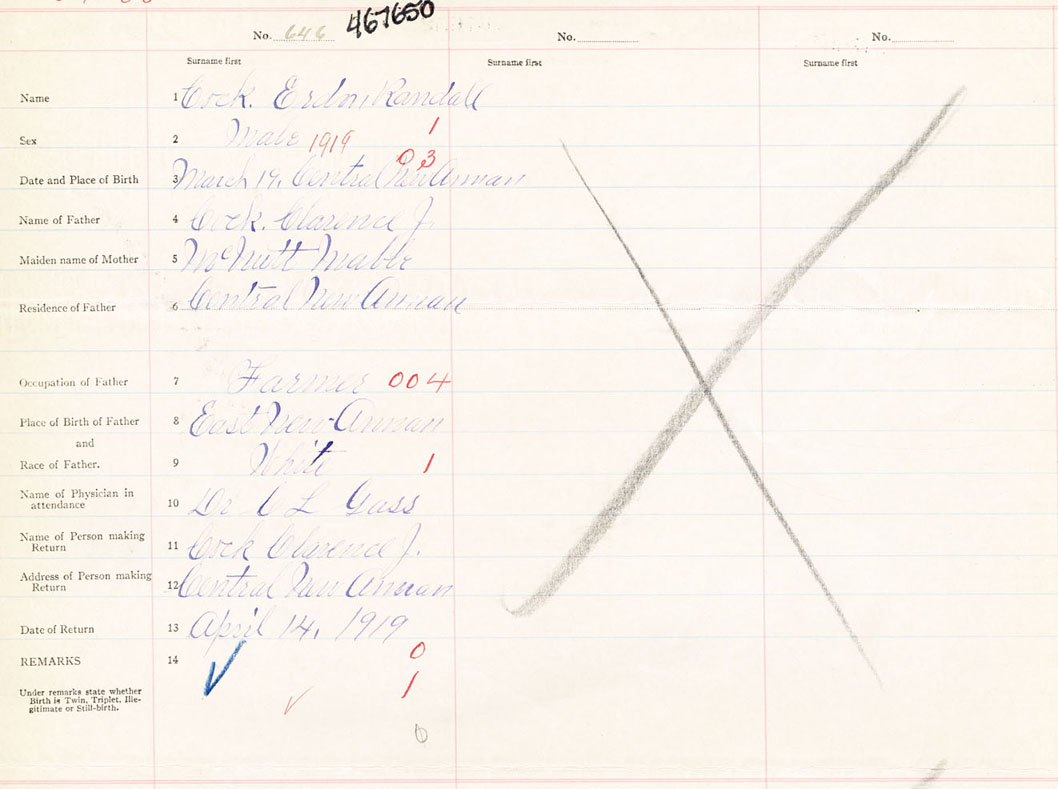 No. 646 467650 No. No.
Surname first Surname first Surname first
Name 1 Cock. Erdon Randall
Sex 2 Male 1919 1
03
Date and Place of Birth 3 March 17, Central New Annan
Name of Father 4 Cock. Clarence J.
Maiden name of Mother 5 McNutt Mable
Residence of Father 6 Central New Annan
Occupation of Father 7 Farmer 004
Place of Birth of Father 8 East New Annan
and
Race of Father. 9 White 1
Name of Physician in attendance 10 Dr C L Gass
Name of Person making Return 11 Cock Clarence J.
Address of Person making Return 12 Central New Annan
Date of Return 13 April 14, 1919
REMARKS 14 0
Under remarks state whether
Birth is Twin, Triplet, Ille-
gitimate or Still-birth.
1
0